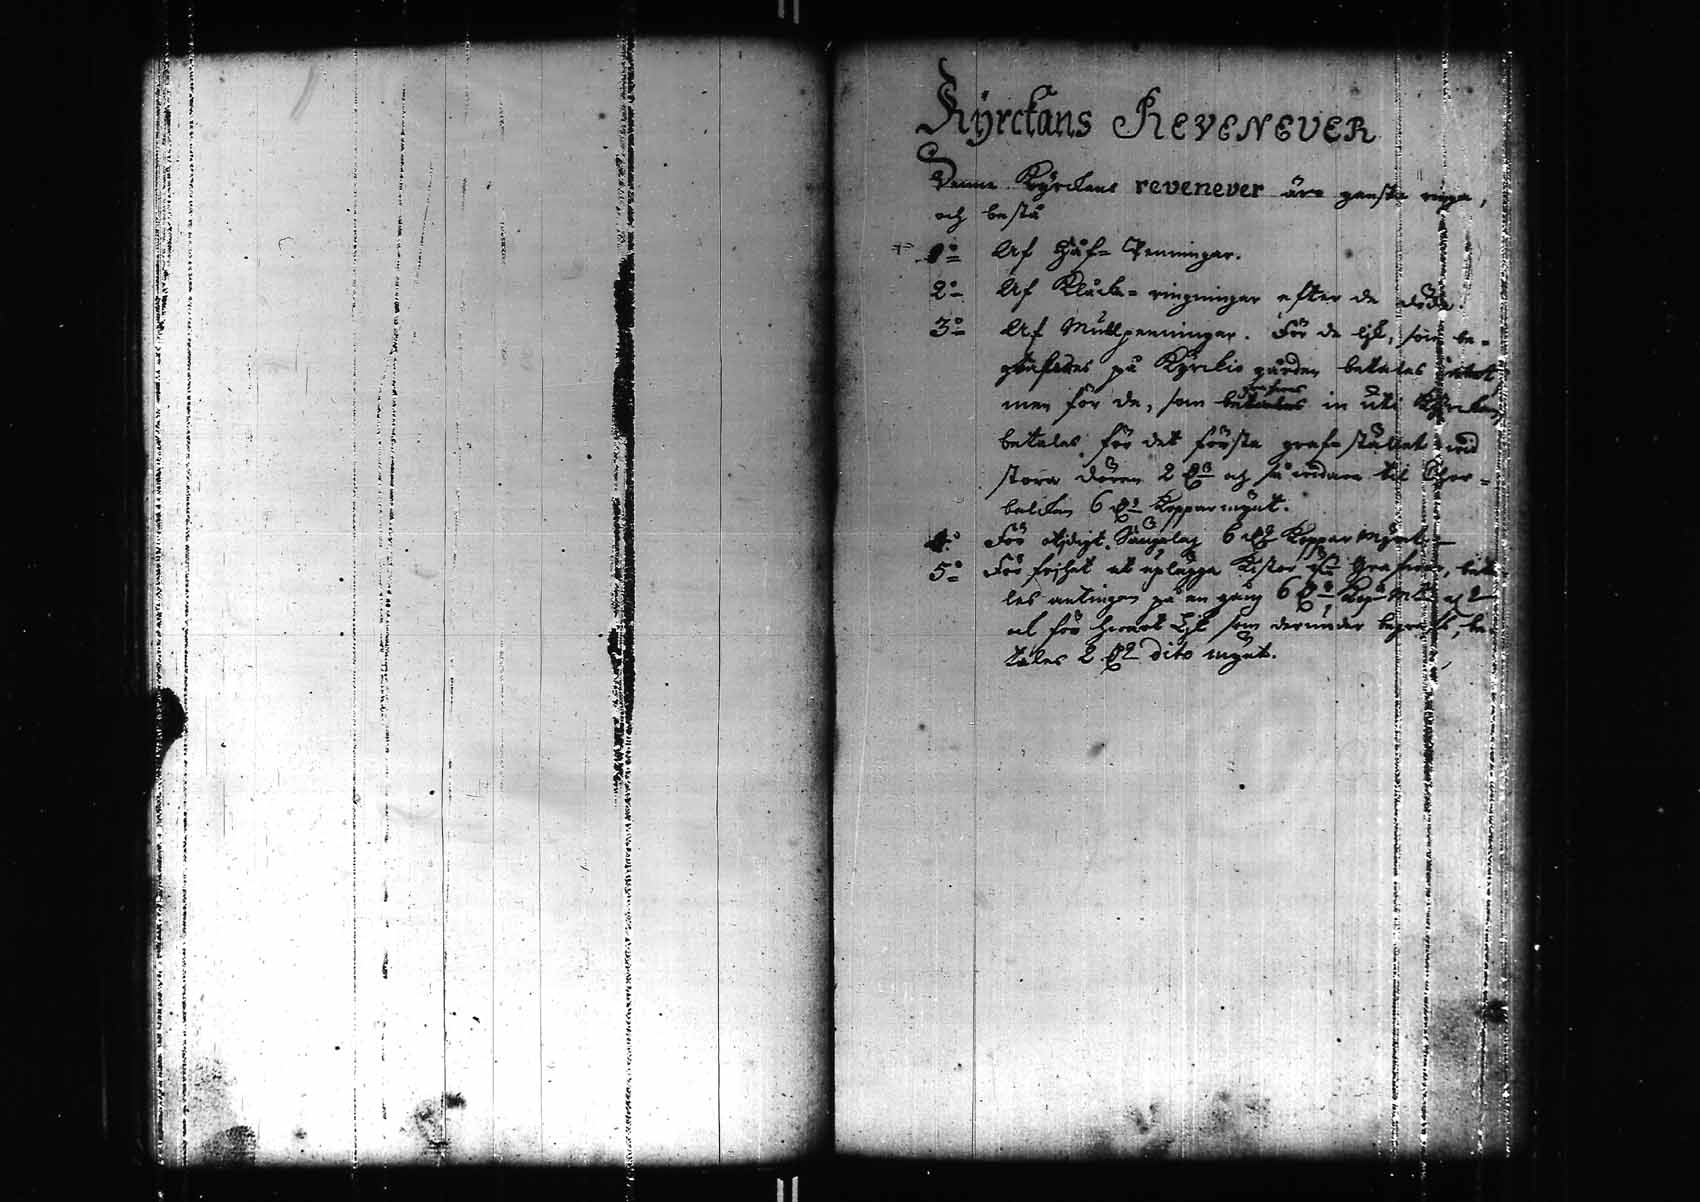 Kyrckans REVENEVER
Denna Kyrckans revenever äro ganska ringa,
och bestå
1:o Af Håf- Penningar.
2:o Af Klåcke- ringningar efter de döda.
3:o Af Mullpenningar. För de lijk, som be-
grafwes på Kyrkio gården betales intet
men för de, som begrafwes in uti Kyrckan,
betales för det första graf- stället wid
stora dören 2 och så widare til Chor-
balcken 6 Koppar mynt.
4:o För Sängelag 6 Koppar Mynt.
5:o För frihet at uplägga Kistor Grafwar, beta-
les antingen på en gång 6
el för hwart Lijk som derunder begrafs, be-
tales 2 dito mynt.